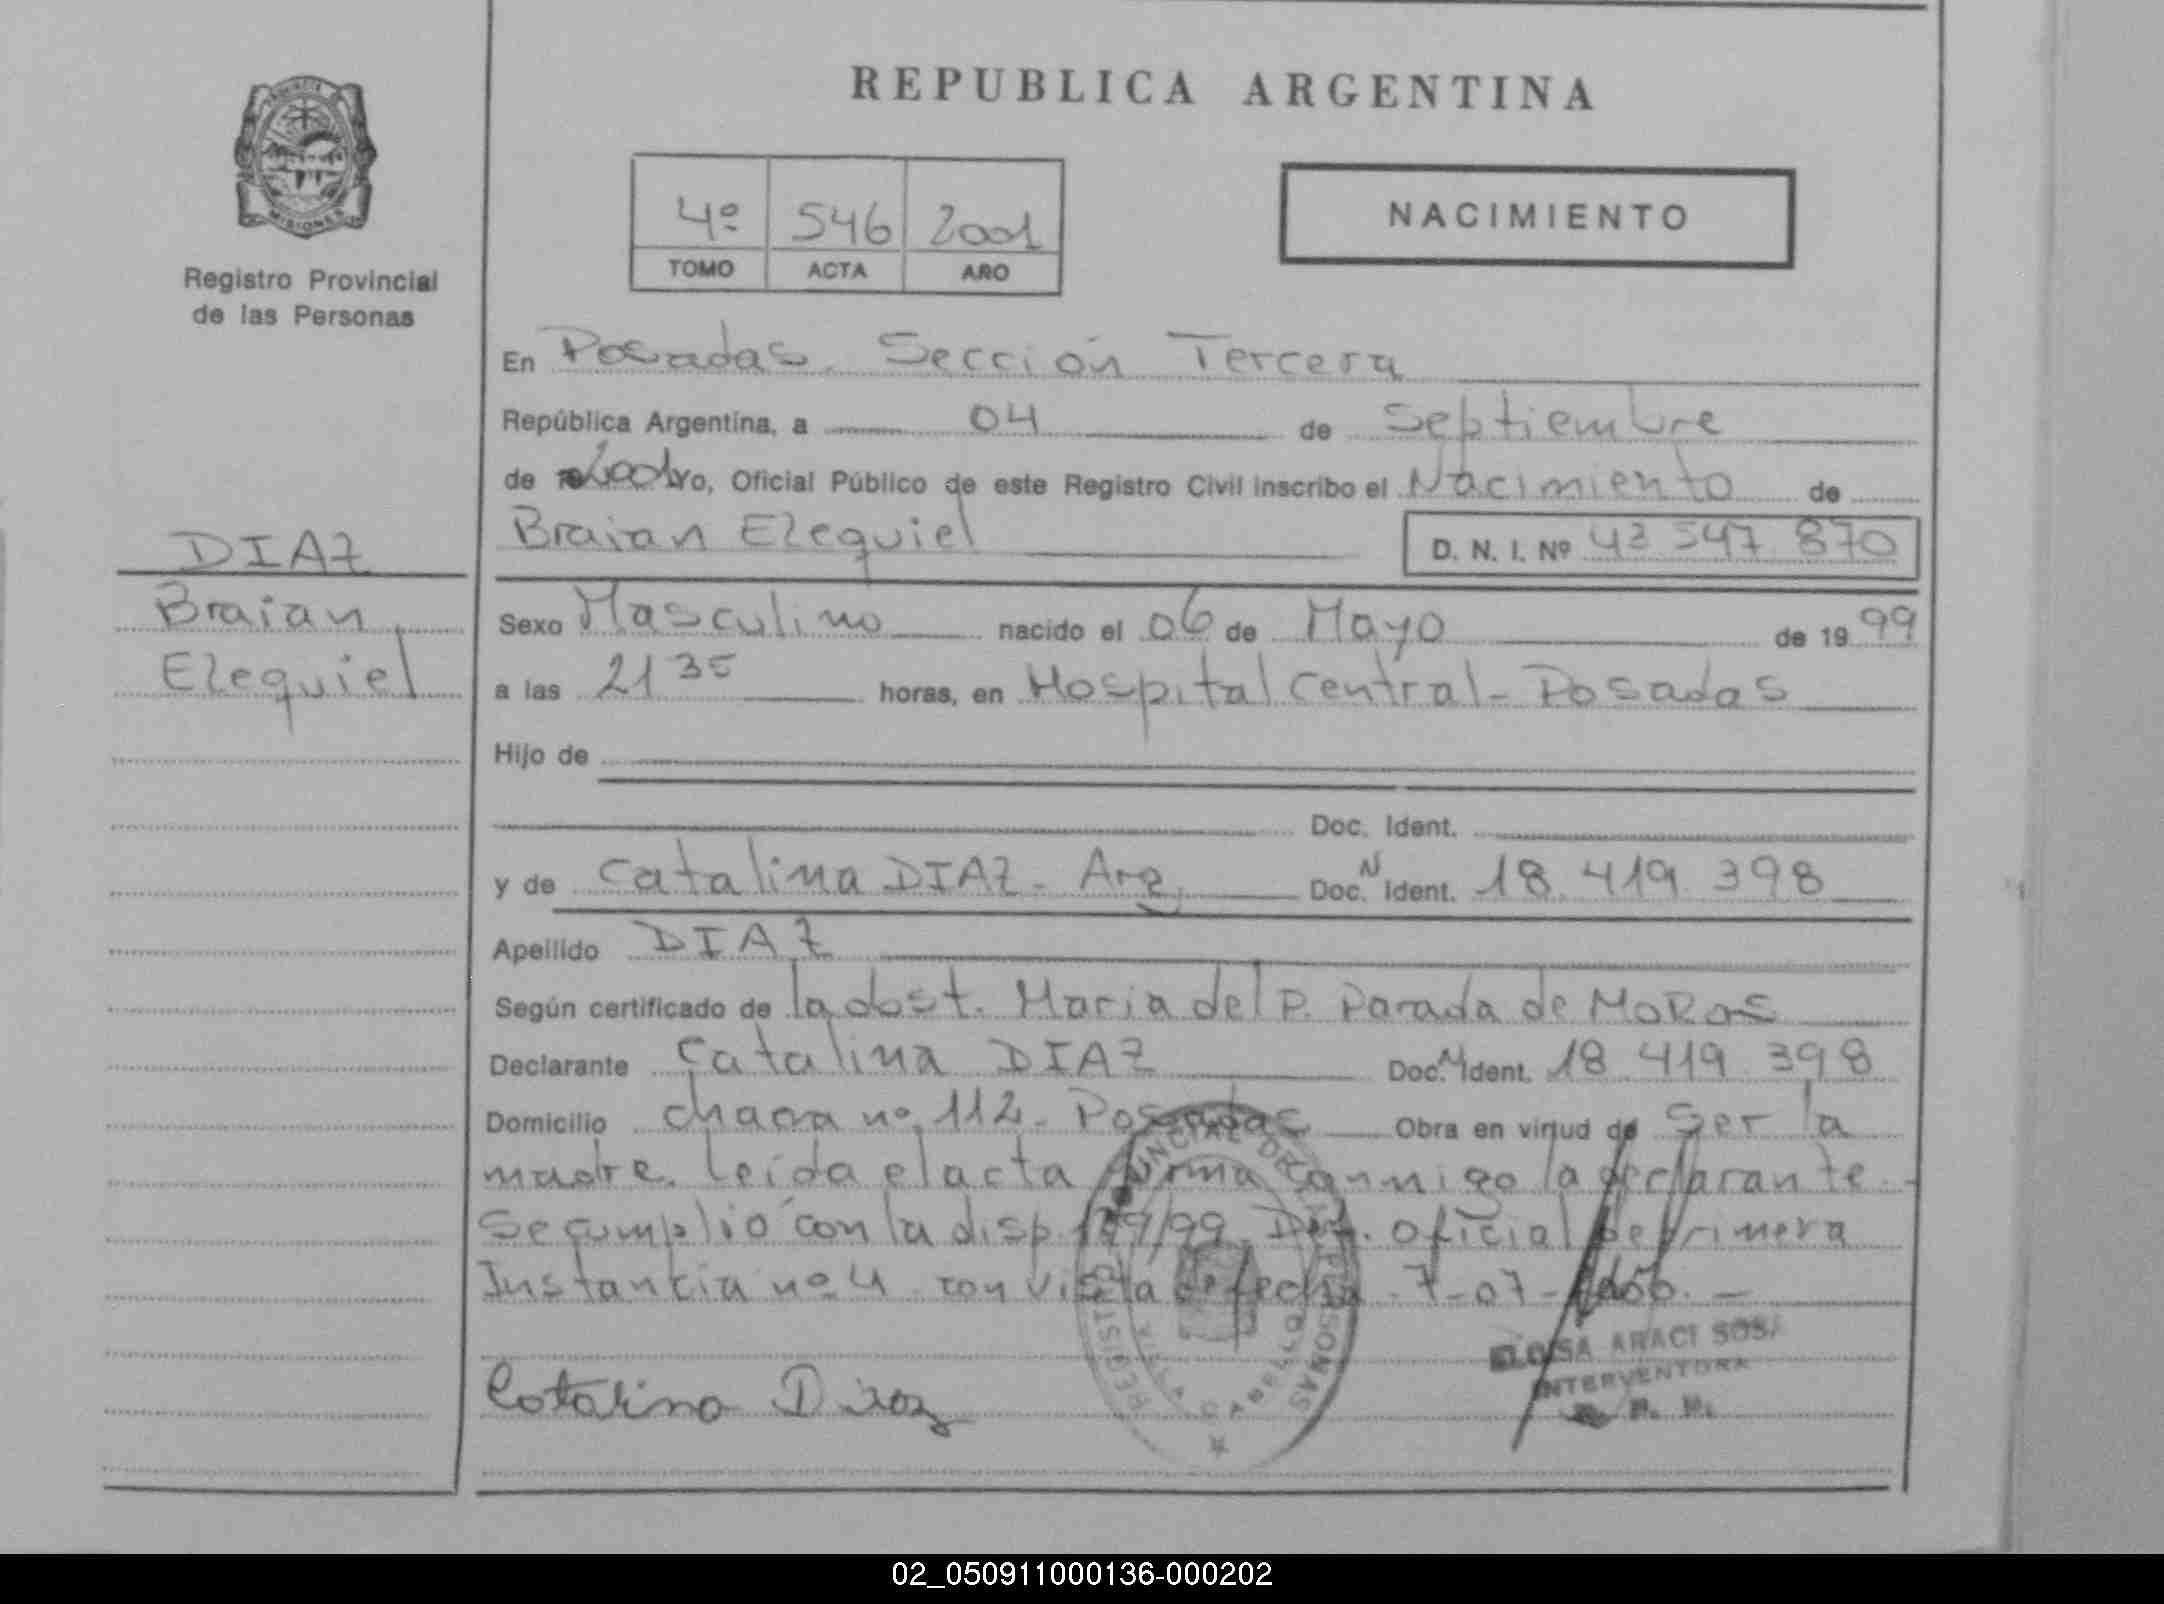 REPUBLICA ARGENTINA
MISIONES
Registro Provincial
de las Personas
4º 546 2001
TOMO ACTA AÑO
NACIMIENTO
En Posadas. Sección Tercera
República Argentina, a 04 de Septiembre
de 2001 yo, Oficial Público de este Registro Civil inscribo el Nacimiento de
Braian Ezequiel D. N. I. Nº 42 547 870
DIAZ
Braian
Ezequiel
Sexo Masculino nacido el 06 de Mayo de 19 99
a las 21 35 horas, en Hospital Central - Posadas
Hijo de
Doc. Ident.
y de Catalina DIAZ - Arg. Doc. N Ident. 18.419.398
Apellido DIAZ
Según certificado de la obst. Maria del P. Parada de MoRas
Declarante Catalina DIAZ Doc. N Ident. 18 419 398
Domicilio chacra nº 112 - Posadas Obra en virtud de Ser la
madre. Leída el acta firma conmigo la declarante.
Se cumplió con la disp. /99. Def. oficial de primera
Instancia nº 4 con vista de fecha 7-07-
Catalina Diaz
ELOISA ARACI SOSA
INTERVENTORA
REGISTRO PROVINCIAL DE LAS PERSONAS
VILLA CABELLO
02_050911000136-000202